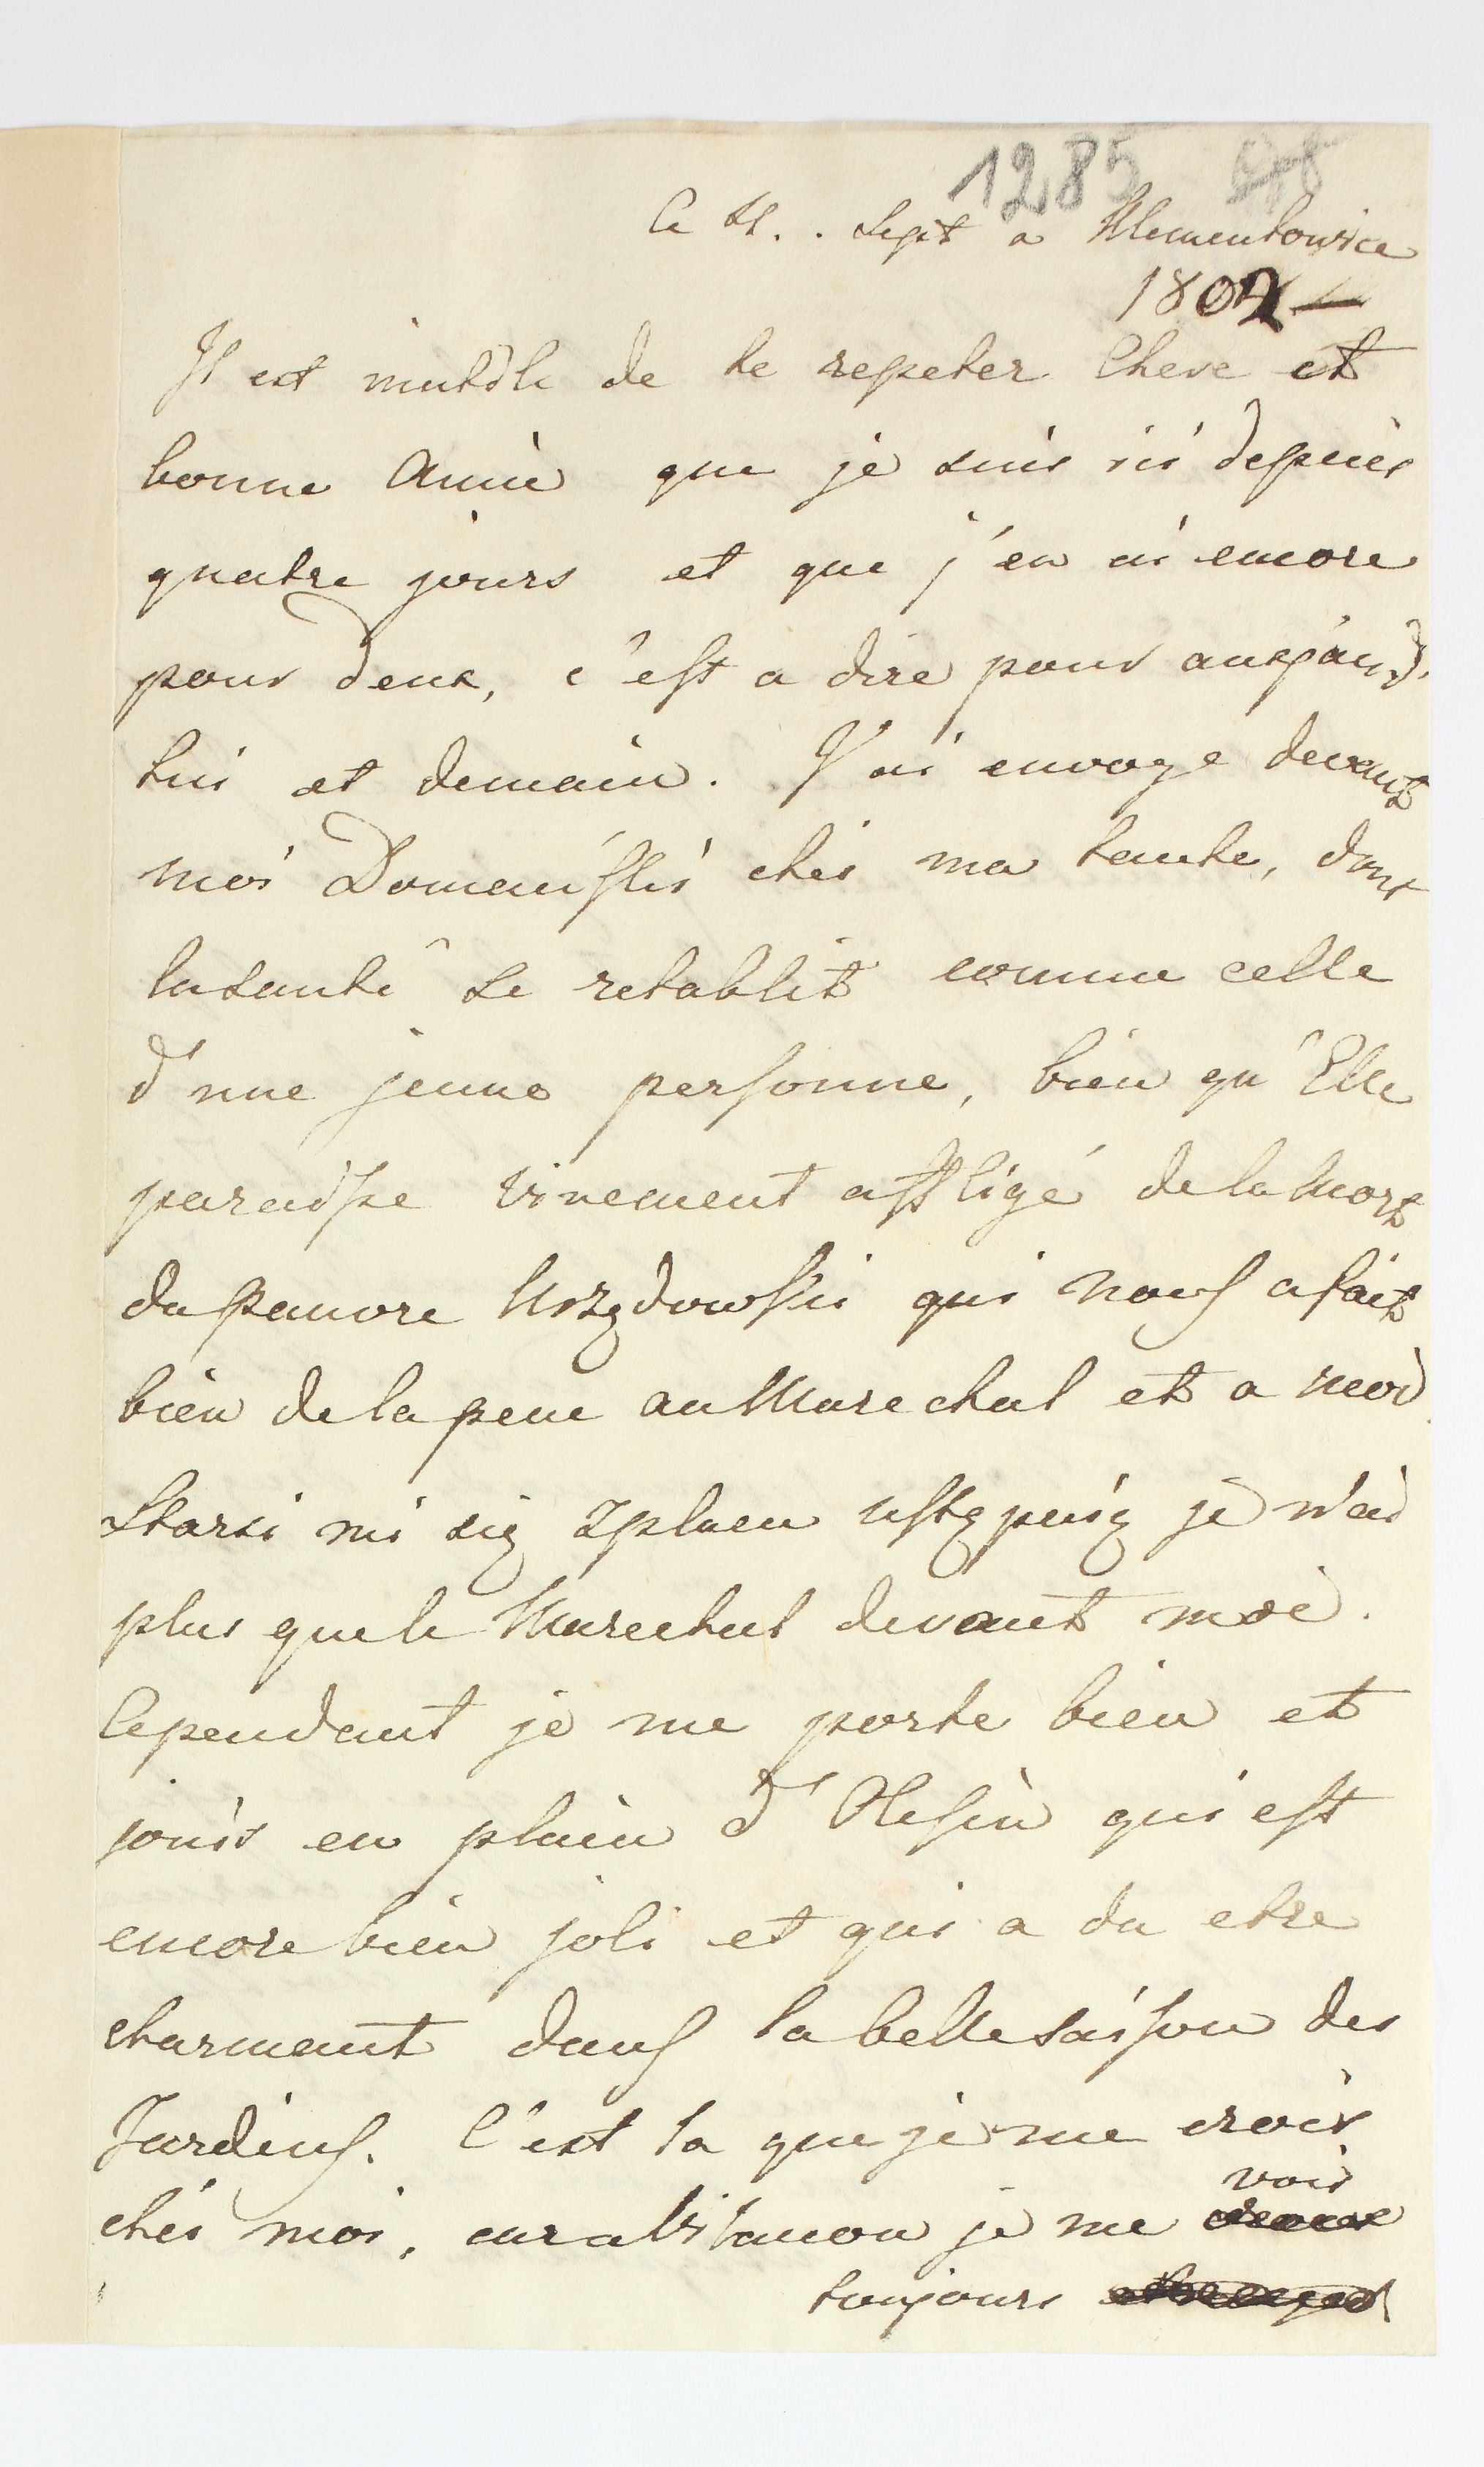 1285
Ce 21. . Sept a Klementowice
1802
Il est inutile de te repeter Chere et
bonne Amie que je suis ici depuis
quatre jours et que j'en ai encore
pour deux, c'est a dire pour aujourd'
hui et demain. J'ai envoye devant
moi Domański chés ma tante, dont
la santé se retablit comme celle
d'une jeune personne, bien qu'Elle
paraisse vivement affligé de la Mort
du pauvre Urzędowski qui nous a fait
bien de la peine au Marechal et a moi
Starsi mi się z placu ustępuią je n'ai
plus que le Marechal devant moi.
Cependant je me porte bien et
jouis en plein d'Olesin qui est
encore bien joli et qui a du etre
charmant dans la belle saison des
Jardins. C'est la que je me crois
chés moi, car a Wilanow je me
voi
toujours